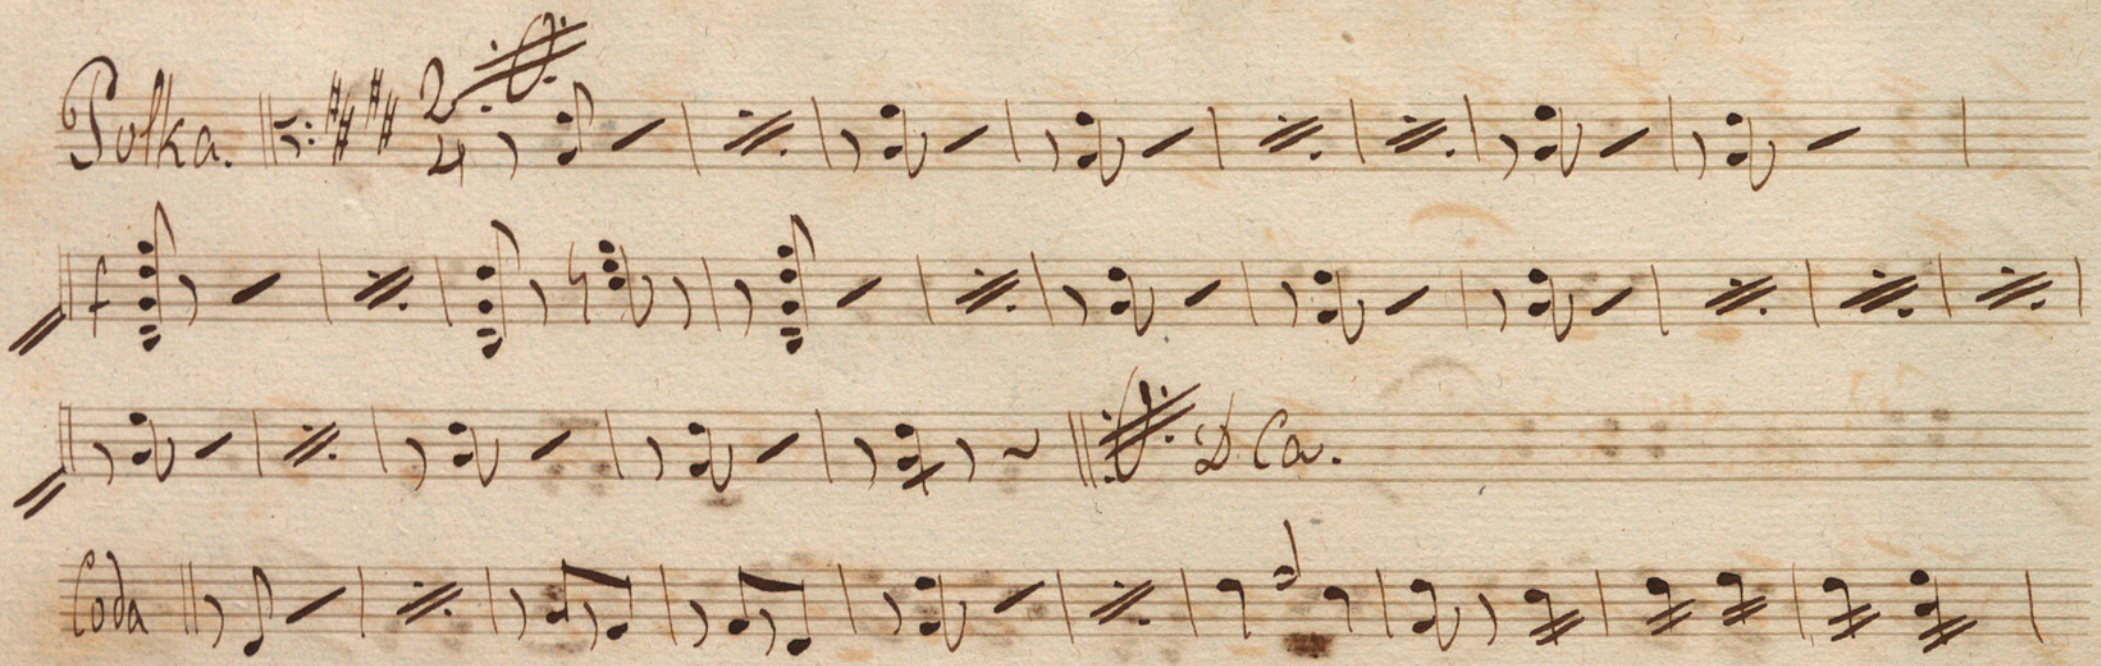 Polka. 2/4
f
D. Ca.
Coda